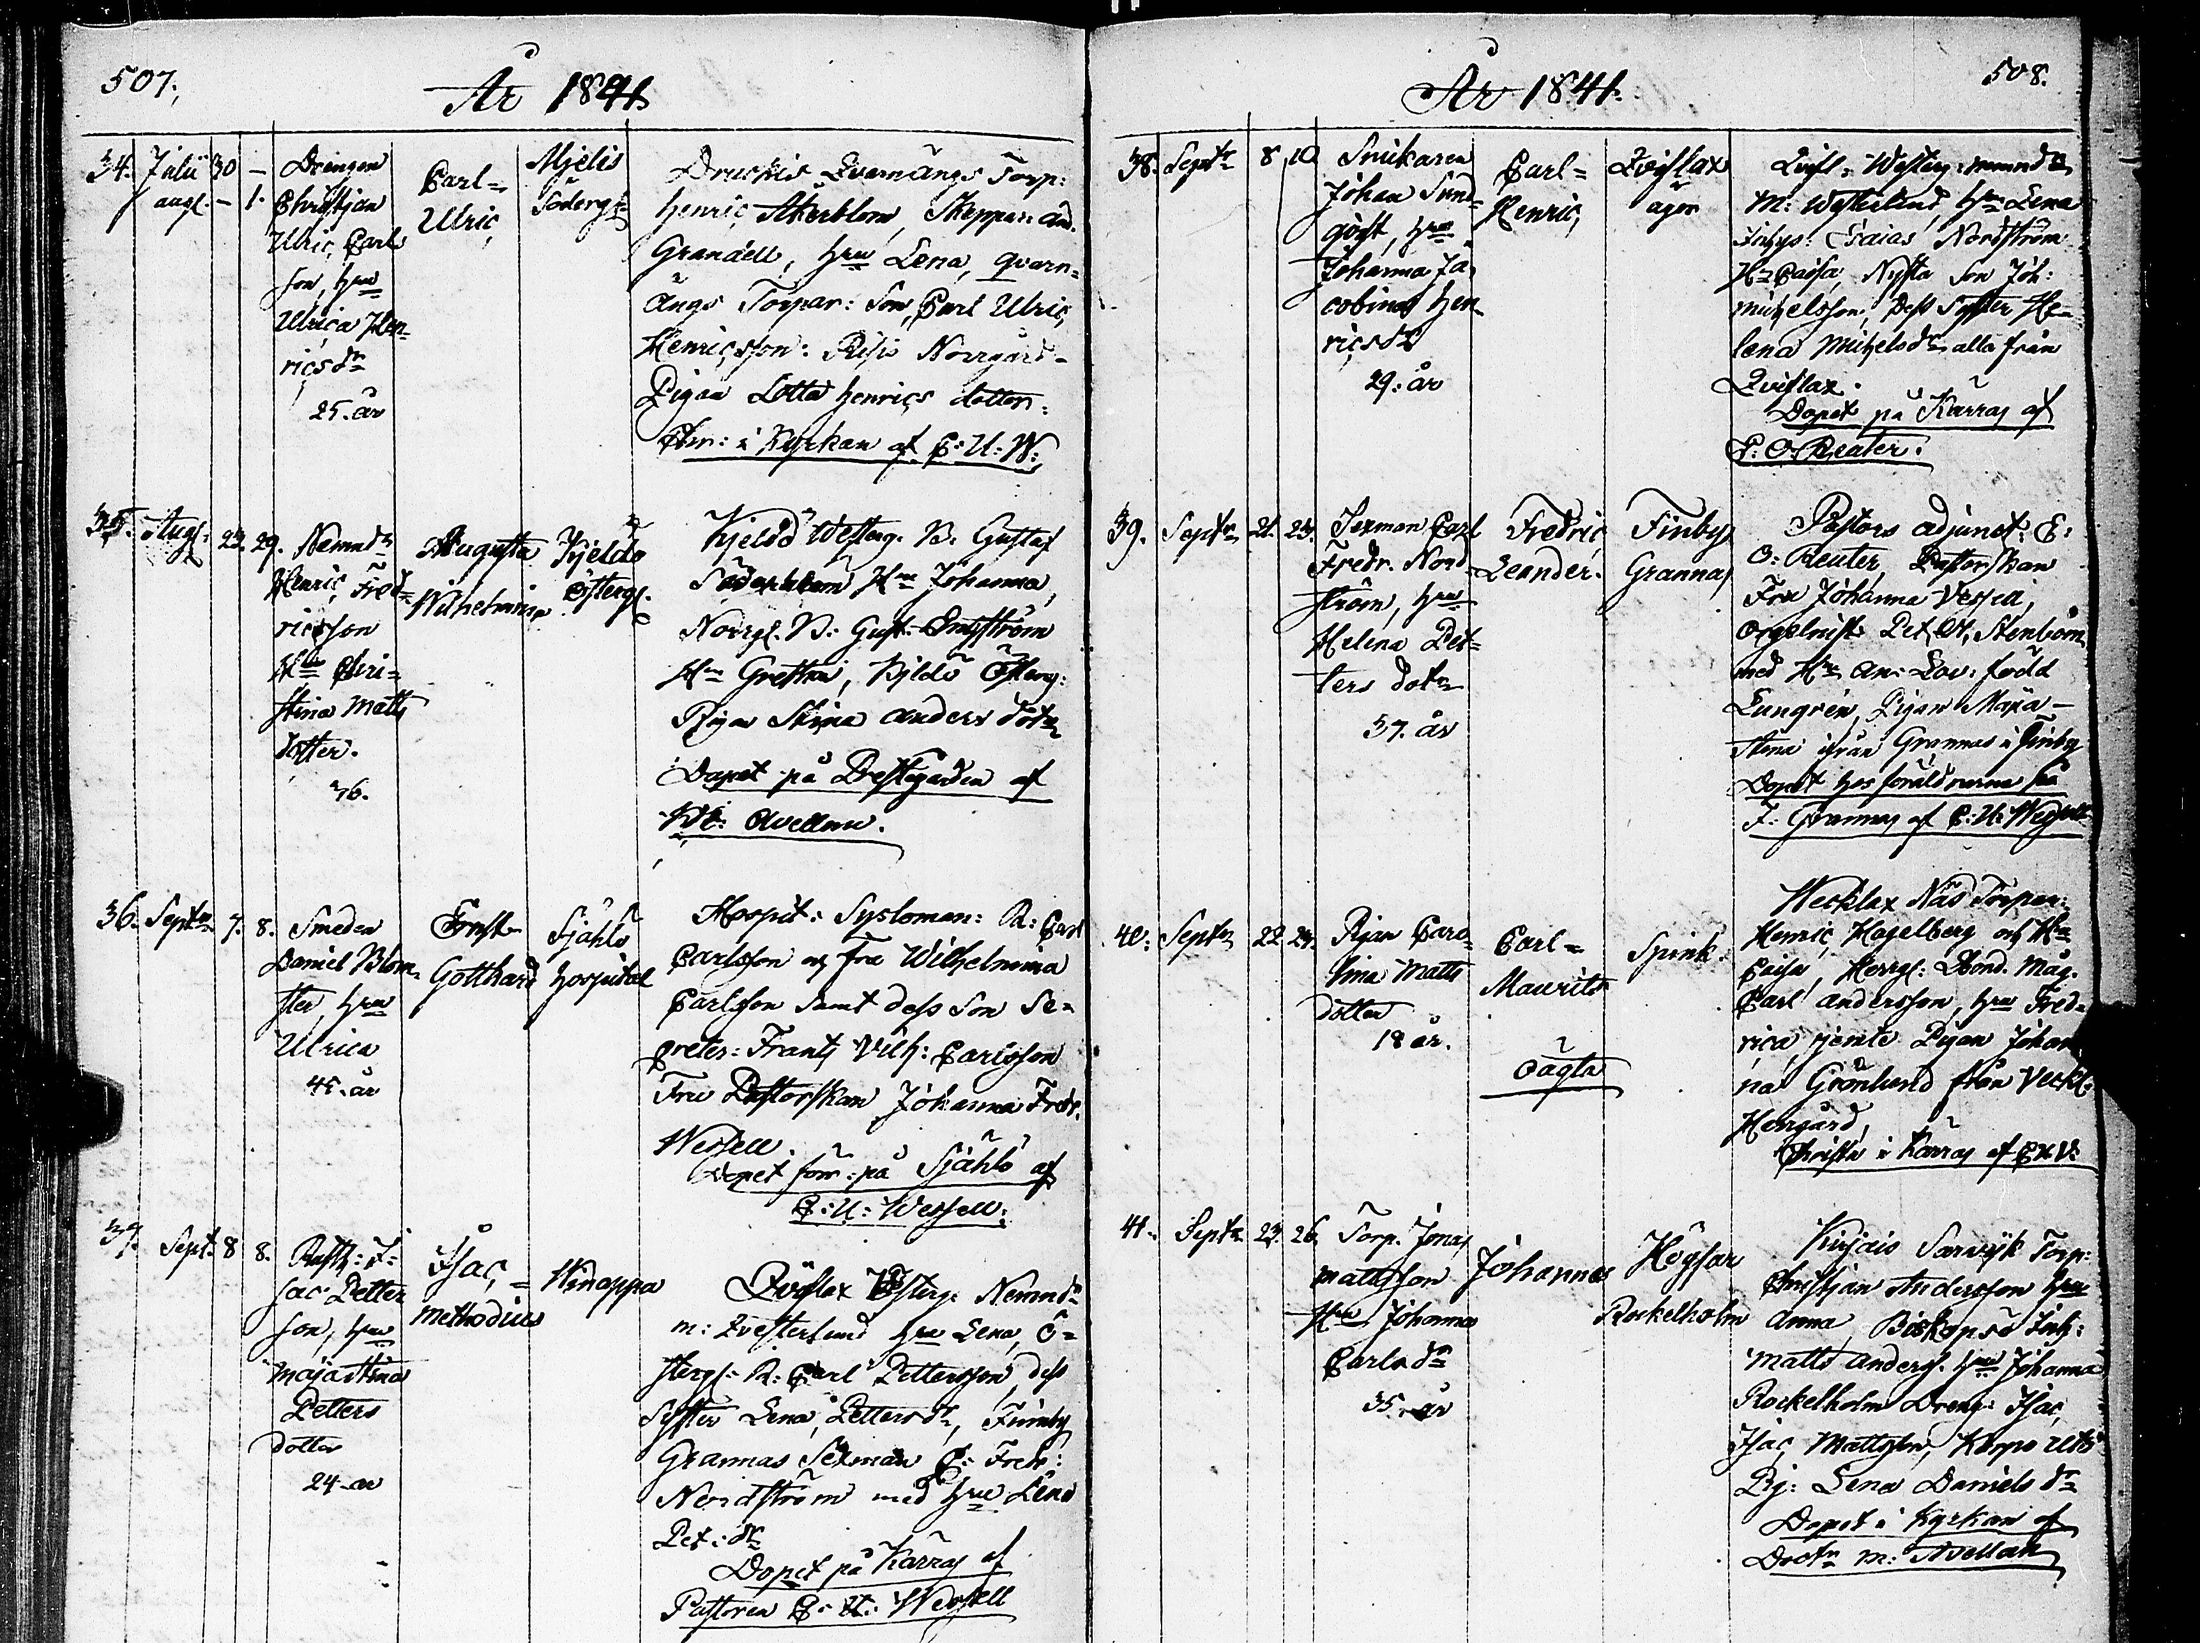 507.
År 1841.
34. Julii 30 –
augs. – 1.
Drengen
Christjan
Ulric Carls
son, hru
Ulrica Hen-
ricsdr
25. år
Carl-
Ulric
Mjelis
Söderg:
Druckis Qvernängs Torp:
henric Åkerblom, Skeppar: And.
Grandell, hru Lena, Qvarn-
ängs Torpar: Son, Carl Ulric
Henricsson: Norrgård-
Pigan Lotta henrics dotter:
Chr: i Kyrkan af C: U: W:
35. Augs: 23. 29.
Nemndn
Henric Fred-
ricsson
Hu Chri-
stina Matts
dotter.
Augusta
Wilhelmina
Kjeldo
Österg.
Kjeldo Westerg. B. Gustaf
Söderblom Hu Johanna,
Norrg. B: Gust. Engström
Hu Gretha, Kjeldo Österg:
Pigan Stina anders dotr
Dopet på Prestgården af
M: Avellan.
36. Septr 7. 8.
Smeden
Daniel Blom-
ster, hru
Ulrica
45. år
Ernst-
Gotthard
Själö
hospital
Hospit: Sysloman: R: Carl
Carlsson och fru Wilhelmina
Carlsson samt dess Son Se-
creter: Frantz Vilh: Carlsson
Fru Pastorskan Johanna Fredr.
Wessell.
Dopet förr: på Själö af
C: U: Wessell.
37. Sept: 8 8.
Rusth: I-
sac Petter
son, hru
Majastina
Petters
dotter
24. år
Isac-
Methodius
Knappa
Qvislax Österg: Nemndn
m: Westerlund hru Lena, Ö-
sterg: R: Carl Pettersson, dess
Syster Lena Pettersdr, Finnby
Grannas Sexman C: Fredr:
Nordström med hru Lena
Pet: dr
Dopet på Karras af
Pastoren C: U: Wessell
508.
År 1841.
38. Septr 8 10
Snickaren
Johan Sund-
qvist, hru
Johanna Ja-
cobina Hen-
ricsdr
29. år
Carl-
Henric,
Qvislax
ägor
Qvisl: Westerg: nemndn
M: Westerlund, hru Lena
Inhys: Esaias Nordström
Hu Caisa, Nysta Son Joh:
Michelsson, dess Syster He-
lena Michelsdr alla från
Qvislax.
Dopet på Karras af
E: O: Reuter.
39. Septr 21. 23.
Sexman Carl
Fredr. Nord-
ström, hru
Helena Pet-
ters dotr
37. år
Fredric
Leander.
Finby
Grannas
Pastors adjunct: E:
O: Reuter, Pastorskan
Fru Johanna Wessell,
Orgelnist Pet. W. Stenbom
med Hu An: Lov: född
Lungrén, Pigan Maja-
Stena från Grannas i Finby
Dopet hos föräldrarna på
F: Grannas af C: U: Wessell
40. Septr 22 24.
Pigan Caro-
lina Matts
dotter
18 år.
Carl-
Maurits
Oägta
Spink.
Wecklax Näs Torpar:
Henric Hagelberg och Hu
Caisa, Herrg: Bond. Måg.
Carl Andersson, hru Fred-
rica jemte Pigan Johan
na Grönlund från Veckl:
Herrgård,
Christn i Karras af CUW:
41. Septr 23. 26.
Torp. Jonas
Mattsson
Hru Johanna
Carlsdr
35. år
Johannes
Högsar
Rockelholm
Kirjais Sarvik Torp:
Christjan Andersson hru
Anna, Biskopsö Inh:
Matts Anders: hru Johanna
Rockelholm Dreng: Isac
Isac Mattsson, Korpo Utö
Pig: Lena Daniels dr
Dopet i Kyrkan af
Doctr M: Avellan